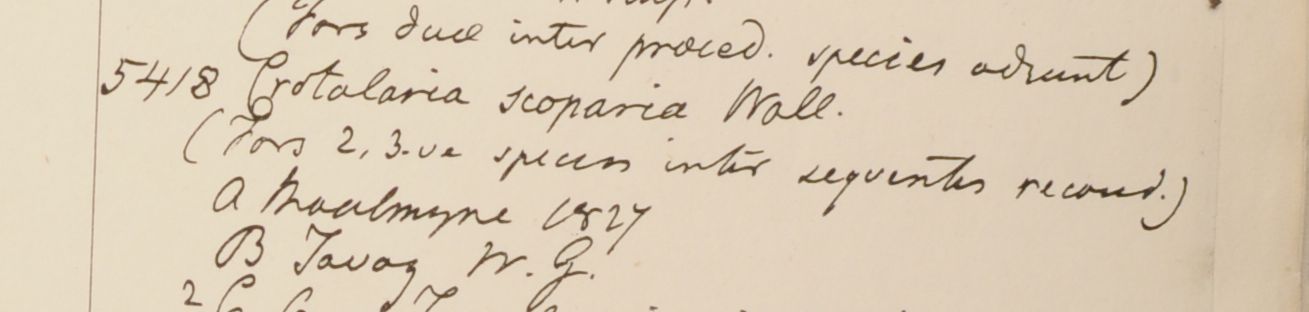 (Fors duae inter praeced. species adsunt)
5418 Crotalaria scoparia Wall.
(Fors 2, 3-ve species inter sequentes recond.)
A Moalmyne 1827
B Tavoy W. G.
2